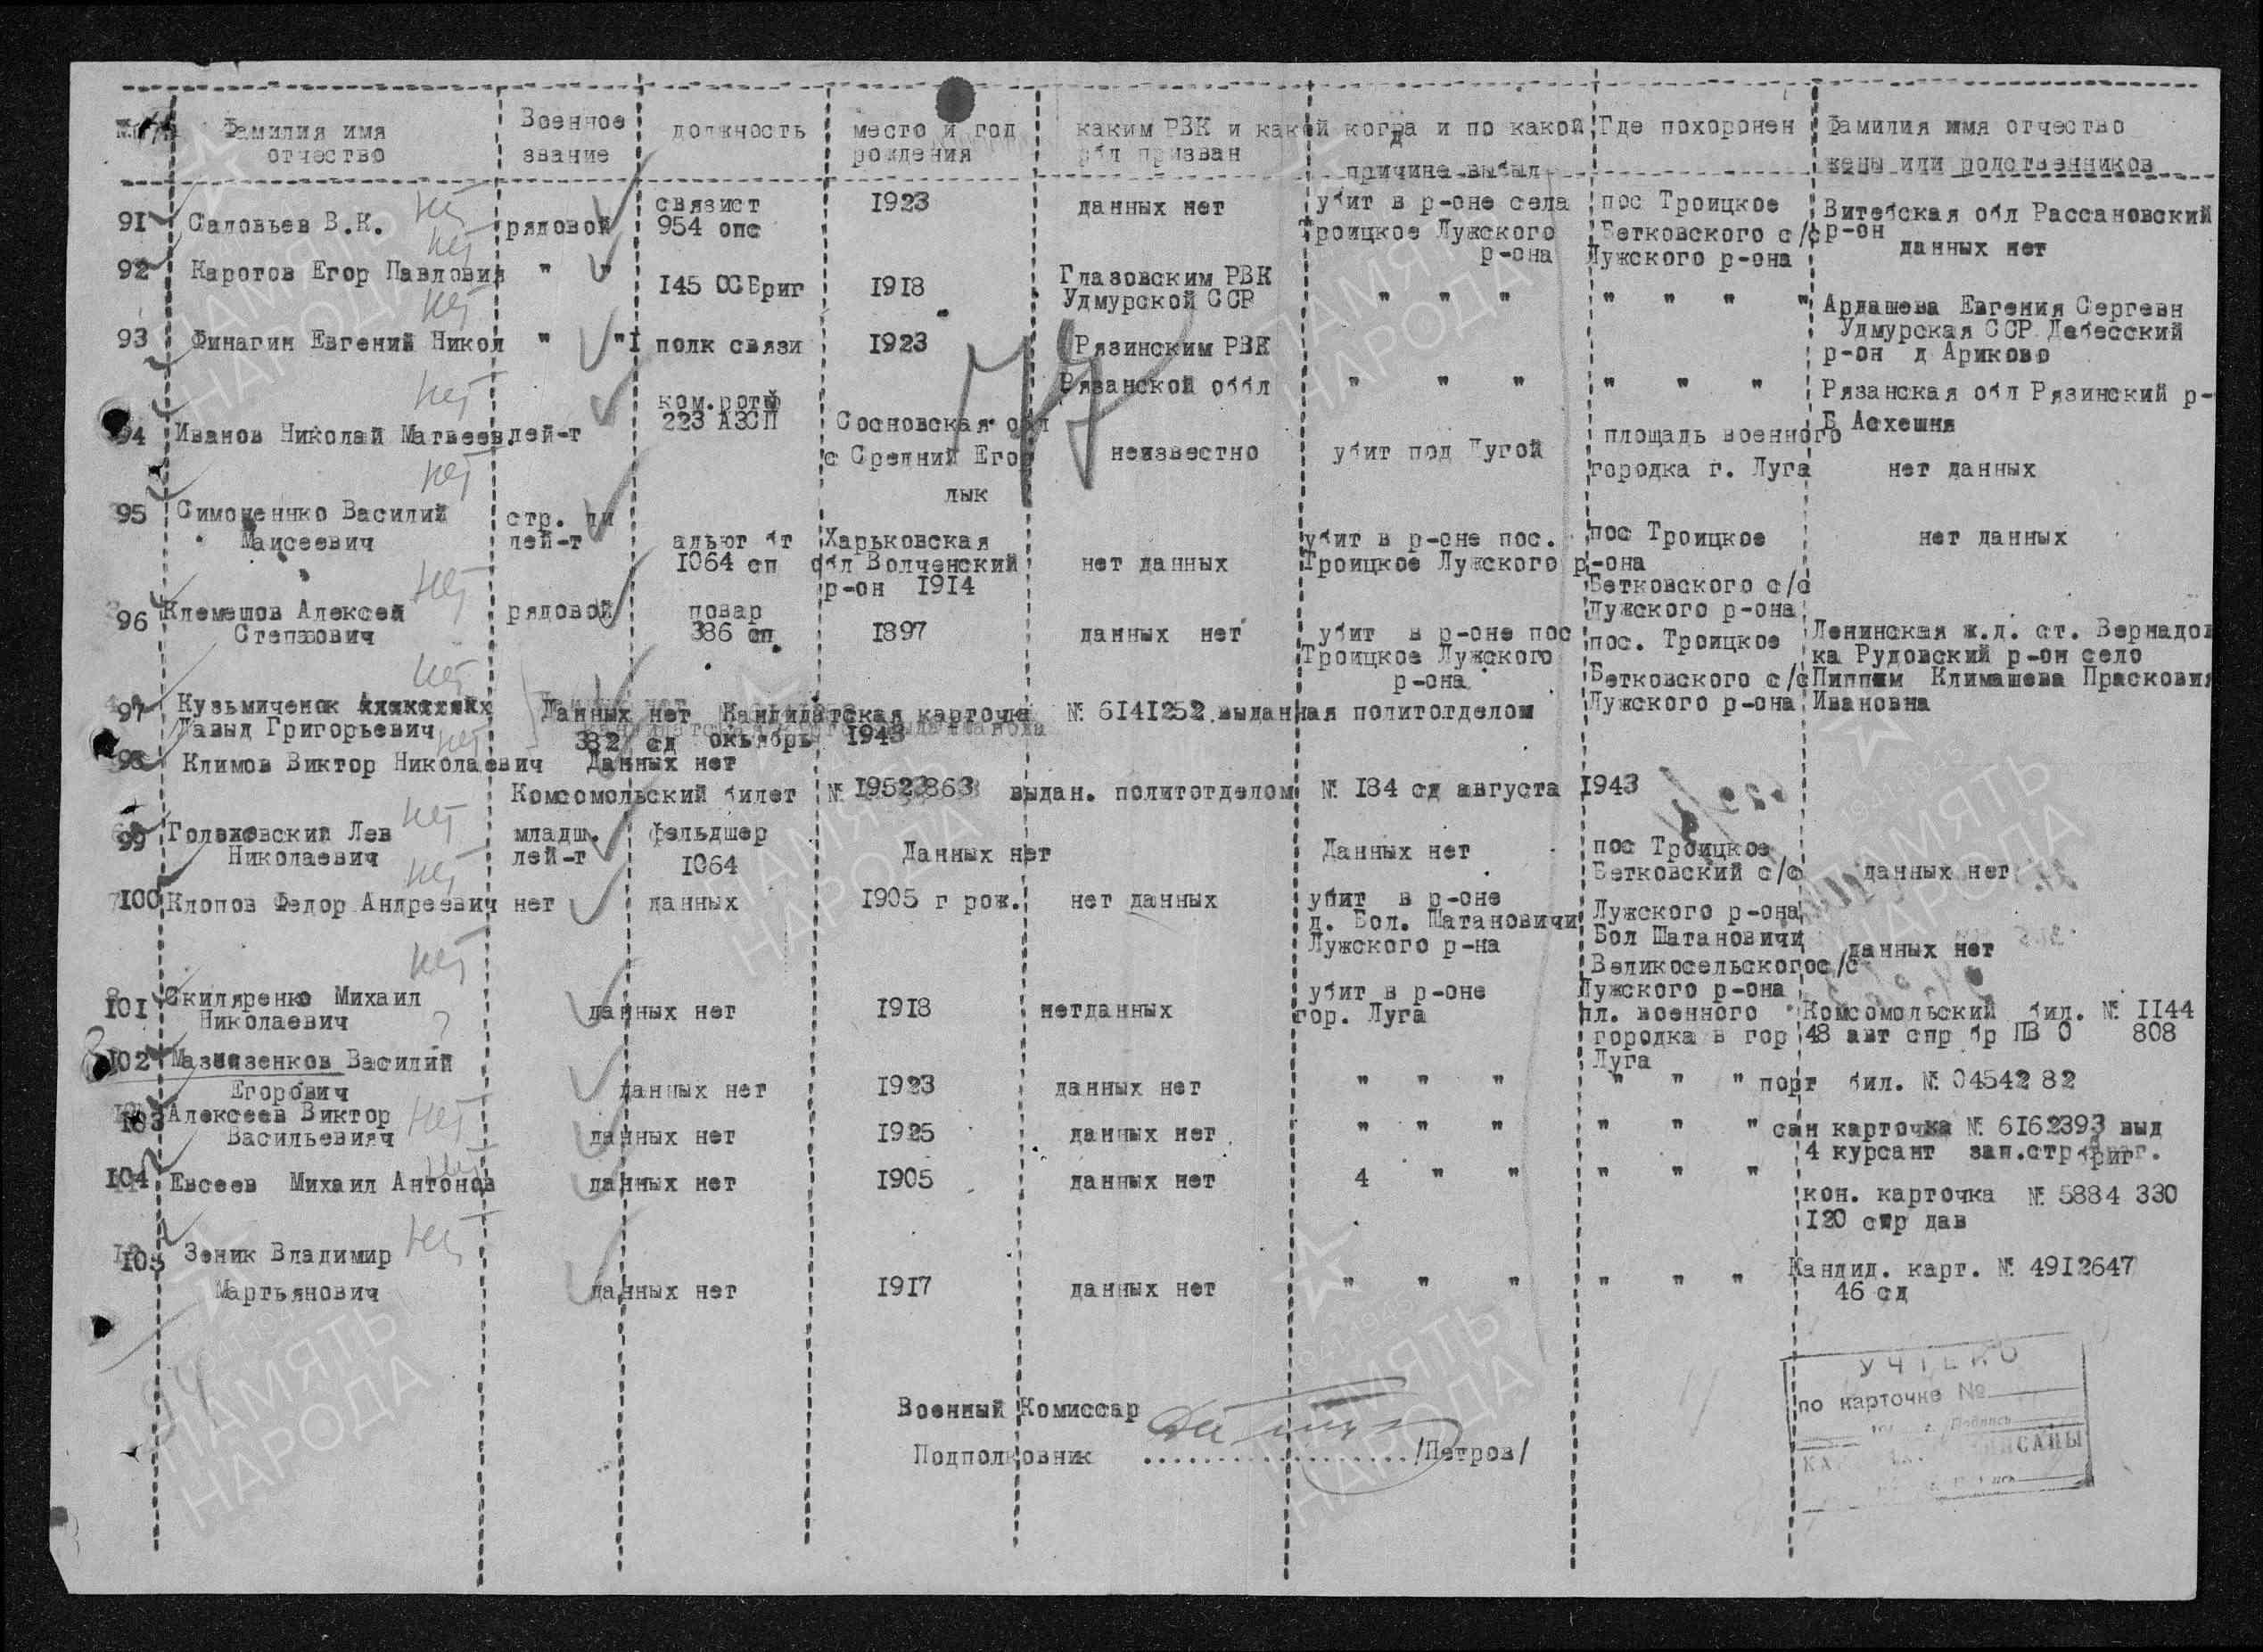 Фамилия имя отчество | Военное звание | должность | место и год рождения | каким РВК и какой обл призван | когда и по какой причине выбыл | Где похоронен | Фамилия имя отчество жены или родственников
91 Саловьев В.К. | рядовой | связист 954 опс | 1923 | данных нет | убит в р-оне села Троицкое Лужского р-она | пос Троицкое Ветковского с/с Лужского р-она | Витебская обл Рассановский р-он данных нет
нет
92 Каротов Егор Павлович | " " | 145 ОСБриг | 1918 | Глазовским РВК Удмурской ССР | " " " | " " " " | Ардашева Евгения Сергеевн Удмурская ССР Дебесский р-он д Ариково
нет
93 Финагин Евгений Никол | " " | I полк связи | 1923 | Рязинским РВК Рязанской оббл | " " " | " " " | Рязанская обл Рязинский р- Б Асхешня
нет
94 Иванов Николай Матвеев. | лей-т | ком.роты 223 АЗСП | Сосновская обл с Средний Егорлык | неизвестно | убит под Лугой | площадь военного городка г. Луга | нет данных
нет
95 Симоненнко Василий Маисеевич | стр. ли лей-т | адьют бт 1064 сп | Харьковская обл Волченский р-он 1914 | нет данных | убит в р-оне пос. Троицкое Лужского р-она | пос Троицкое Ветковского с/с Лужского р-она | нет данных
нет
96 Клемешов Алексей Степанович | рядовой | повар 386 сп | 1897 | данных нет | убит в р-оне пос Троицкое Лужского р-она | пос. Троицкое Ветковского с/с Лужского р-она | Ленинская ж.д. ст. Вернадовка Рудовский р-он село Пиппям Климашева Прасковия Ивановна
нет
97 Кузьмиченок Давыд Григорьевич | Данных нет Кандидатская карточке № 6141252 выданная политотделом 382 сд октябрь 1943
нет
98 Климов Виктор Николаевич | Данных нет
нет
Комсомольский билет № 19523863 выдан. политотделом № 184 сд августа 1943
99 Голаховский Лев Николаевич | младш. лей-т | фельдшер 1064 | Данных нет | Данных нет | пос Троицкое Ветковский с/с Лужского р-она | данных нет
нет
100 Клопов Федор Андреевич | нет | данных | 1905 г рож. | нет данных | убит в р-оне д. Бол. Шатановичи Лужского р-на | Бол Шатановичи Великосельского с/с Лужского р-она | данных нет
нет
101 Скиляренко Михаил Николаевич | данных нет | 1918 | нетданных | убит в р-оне гор. Луга | пл. военного городка в гор Луга | Комсомольский бил. № 1144 808 48 авт стр бр ПВ О
нет
102 Мазмазенков Василий Егорович | данных нет | 1923 | данных нет | " " " | " " " | порт бил. № 0454282
?
103 Алексеев Виктор Васильевияч | данных нет | 1925 | данных нет | " " " | " " " | сан карточка № 6162393 выд 4 курсант зап.стр бриг.
нет
104 Евсеев Михаил Антонов | данных нет | 1905 | данных нет | 4 " " | " " " | кон. карточка № 5884 330 120 стр дав
нет
105 Зеник Владимир Мартьянович | данных нет | 1917 | данных нет | " " " | " " " | Кандид. карт. № 4912647 46 сд
нет
Военный Комиссар
Подполковник ................../Петров/
УЧТЕНО
по карточке №
Подпись
ПАМЯТЬ НАРОДА
1941-1945